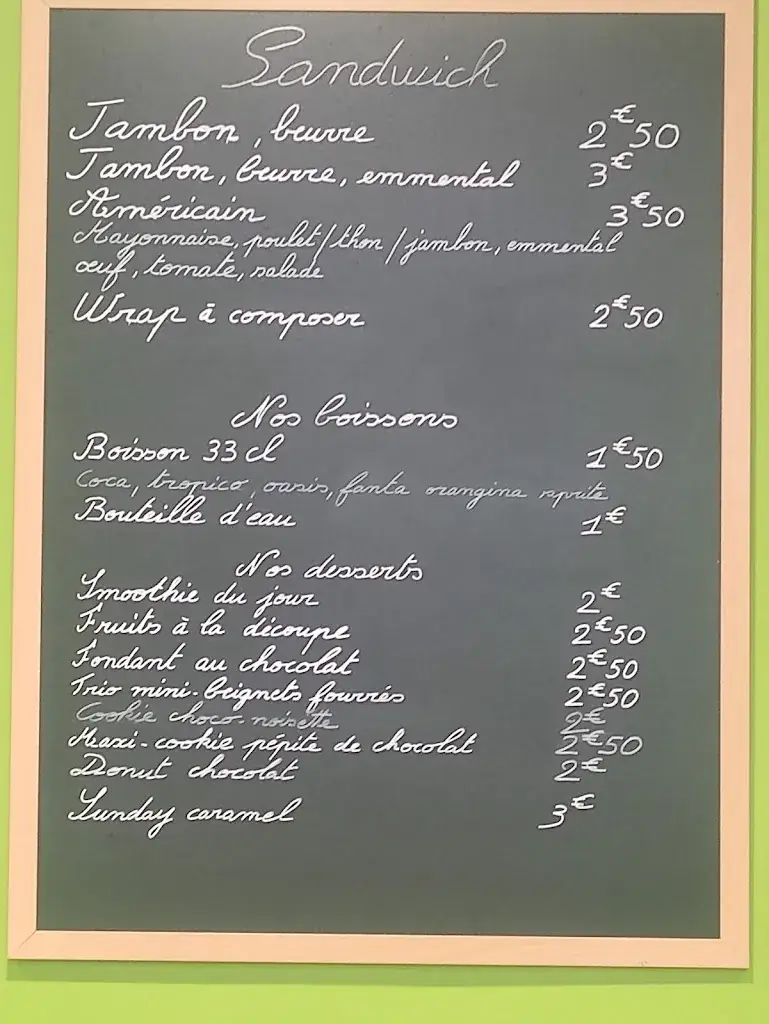 Sandwich
Jambon, beurre 2€50
Jambon, beurre, emmental 3€
Américain 3€50
Mayonnaise, poulet/thon/jambon, emmental
œuf, tomate, salade
Wrap à composer 2€50
Nos boissons
Boisson 33 cl 1€50
Coca, tropico, oasis, fanta orangina sprite
Bouteille d'eau 1€
Nos desserts
Smoothie du jour 2€
Fruits à la découpe 2€50
Fondant au chocolat 2€50
Trio mini-beignets fourrés 2€50
Cookie choco-noisette 2€
Maxi-cookie pépite de chocolat 2€50
Donut chocolat 2€
Sunday caramel 3€